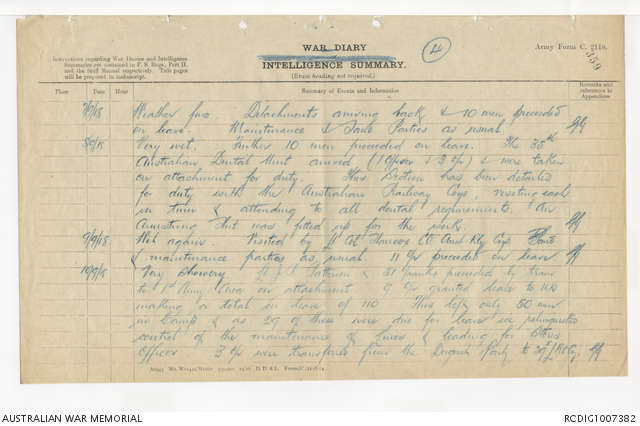 WAR DIARY
INTELLIGENCE SUMMARY.
(Erase heading not required.)
4
Army Form C. 2118.
350
Instructions regarding War Diaries and Intelligence
Summaries are contained in F. S. Regs., Part II.
and the Staff Manual respectively. Title pages
will be prepared in manuscript.
Place
Date
Hour
Summary of Events and Information
Remarks and
references to
Appendices
7/9/18 Weather fine. Detachments arriving back & 10 men proceeded
on leave. Maintenance & Parties as usual.
8/9/18 Very wet. Further 10 men proceeded on leave. The 35th
Australian Dental Unit arrived (1 Officer & 3 O/R) & were taken
on attachment for duty. This Section has been detailed
for duty with the Australian Railway Coys, visiting each
in turn & attending to all dental requirements. An
Armstrong Hut was fitted up for the work.
9/9/18 Wet again. Visited by Lt Col OC Aust Rly Coys
& maintenance parties as usual. 11 O/R proceeded on leave
10/9/18 Very Showery Lt J.J. & 81 Ranks proceeded by train
to 1st Army Area on attachment. 9 O/R granted leave to UK
making a total on leave of 110. This left only 50 men
in Camp & as 29 of these were due for leave we relinquished
control of the maintenance of Lines & loading for Other
Offices 3 O/R were transferred from the Party to